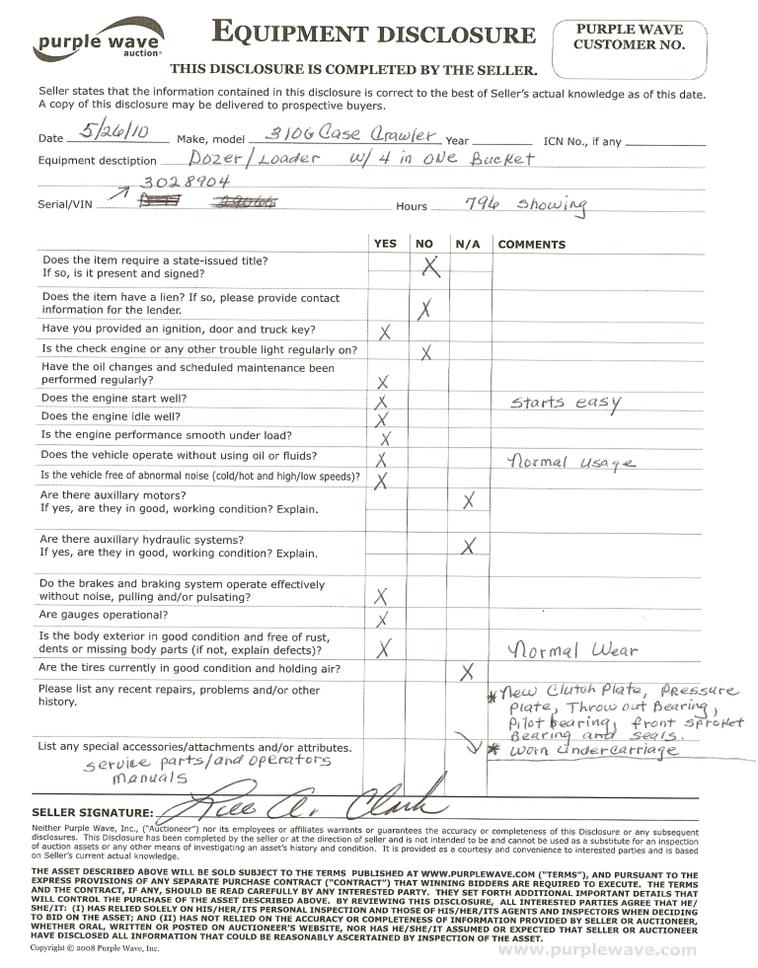 purple wave
auction®
EQUIPMENT DISCLOSURE
PURPLE WAVE
CUSTOMER NO.
THIS DISCLOSURE IS COMPLETED BY THE SELLER.
Seller states that the information contained in this disclosure is correct to the best of Seller's actual knowledge as of this date.
A copy of this disclosure may be delivered to prospective buyers.
Date 5/26/10 Make, model 310G Case Crawler Year ICN No., if any
Equipment desctiption Dozer/Loader w/ 4 in one Bucket
3028904
Serial/VIN Hours 796 showing
YES NO N/A COMMENTS
Does the item require a state-issued title? X
If so, is it present and signed?
Does the item have a lien? If so, please provide contact
information for the lender. X
Have you provided an ignition, door and truck key? X
Is the check engine or any other trouble light regularly on? X
Have the oil changes and scheduled maintenance been
performed regularly? X
Does the engine start well? X starts easy
Does the engine idle well? X
Is the engine performance smooth under load? X
Does the vehicle operate without using oil or fluids? X Normal usage
Is the vehicle free of abnormal noise (cold/hot and high/low speeds)? X
Are there auxillary motors? X
If yes, are they in good, working condition? Explain.
Are there auxillary hydraulic systems? X
If yes, are they in good, working condition? Explain.
Do the brakes and braking system operate effectively
without noise, pulling and/or pulsating? X
Are gauges operational? X
Is the body exterior in good condition and free of rust,
dents or missing body parts (if not, explain defects)? X Normal Wear
Are the tires currently in good condition and holding air? X
Please list any recent repairs, problems and/or other
history.
* New Clutch Plate, Pressure
Plate, Throw out Bearing,
Pilot bearing, front sproket
Bearing and seals.
* Worn undercarriage
List any special accessories/attachments and/or attributes.
service parts/and operators
manuals
SELLER SIGNATURE: A. Clark
Neither Purple Wave, Inc., ("Auctioneer") nor its employees or affiliates warrants or guarantees the accuracy or completeness of this Disclosure or any subsequent
disclosures. This Disclosure has been completed by the seller or at the direction of seller and is not intended to be and cannot be used as a substitute for an inspection
of auction assets or any other means of investigating an asset's history and condition. It is provided as a courtesy and convenience to interested parties and is based
on Seller's current actual knowledge.
THE ASSET DESCRIBED ABOVE WILL BE SOLD SUBJECT TO THE TERMS PUBLISHED AT WWW.PURPLEWAVE.COM ("TERMS"), AND PURSUANT TO THE
EXPRESS PROVISIONS OF ANY SEPARATE PURCHASE CONTRACT ("CONTRACT") THAT WINNING BIDDERS ARE REQUIRED TO EXECUTE. THE TERMS
AND THE CONTRACT, IF ANY, SHOULD BE READ CAREFULLY BY ANY INTERESTED PARTY. THEY SET FORTH ADDITIONAL IMPORTANT DETAILS THAT
WILL CONTROL THE PURCHASE OF THE ASSET DESCRIBED ABOVE. BY REVIEWING THIS DISCLOSURE, ALL INTERESTED PARTIES AGREE THAT HE/
SHE/IT: (I) HAS RELIED SOLELY ON HIS/HER/ITS PERSONAL INSPECTION AND THOSE OF HIS/HER/ITS AGENTS AND INSPECTORS WHEN DECIDING
TO BID ON THE ASSET; AND (II) HAS NOT RELIED ON THE ACCURACY OR COMPLETENESS OF INFORMATION PROVIDED BY SELLER OR AUCTIONEER,
WHETHER ORAL, WRITTEN OR POSTED ON AUCTIONEER'S WEBSITE, NOR HAS HE/SHE/IT ASSUMED OR EXPECTED THAT SELLER OR AUCTIONEER
HAVE DISCLOSED ALL INFORMATION THAT COULD BE REASONABLY ASCERTAINED BY INSPECTION OF THE ASSET.
Copyright © 2008 Purple Wave, Inc.
www.purplewave.com